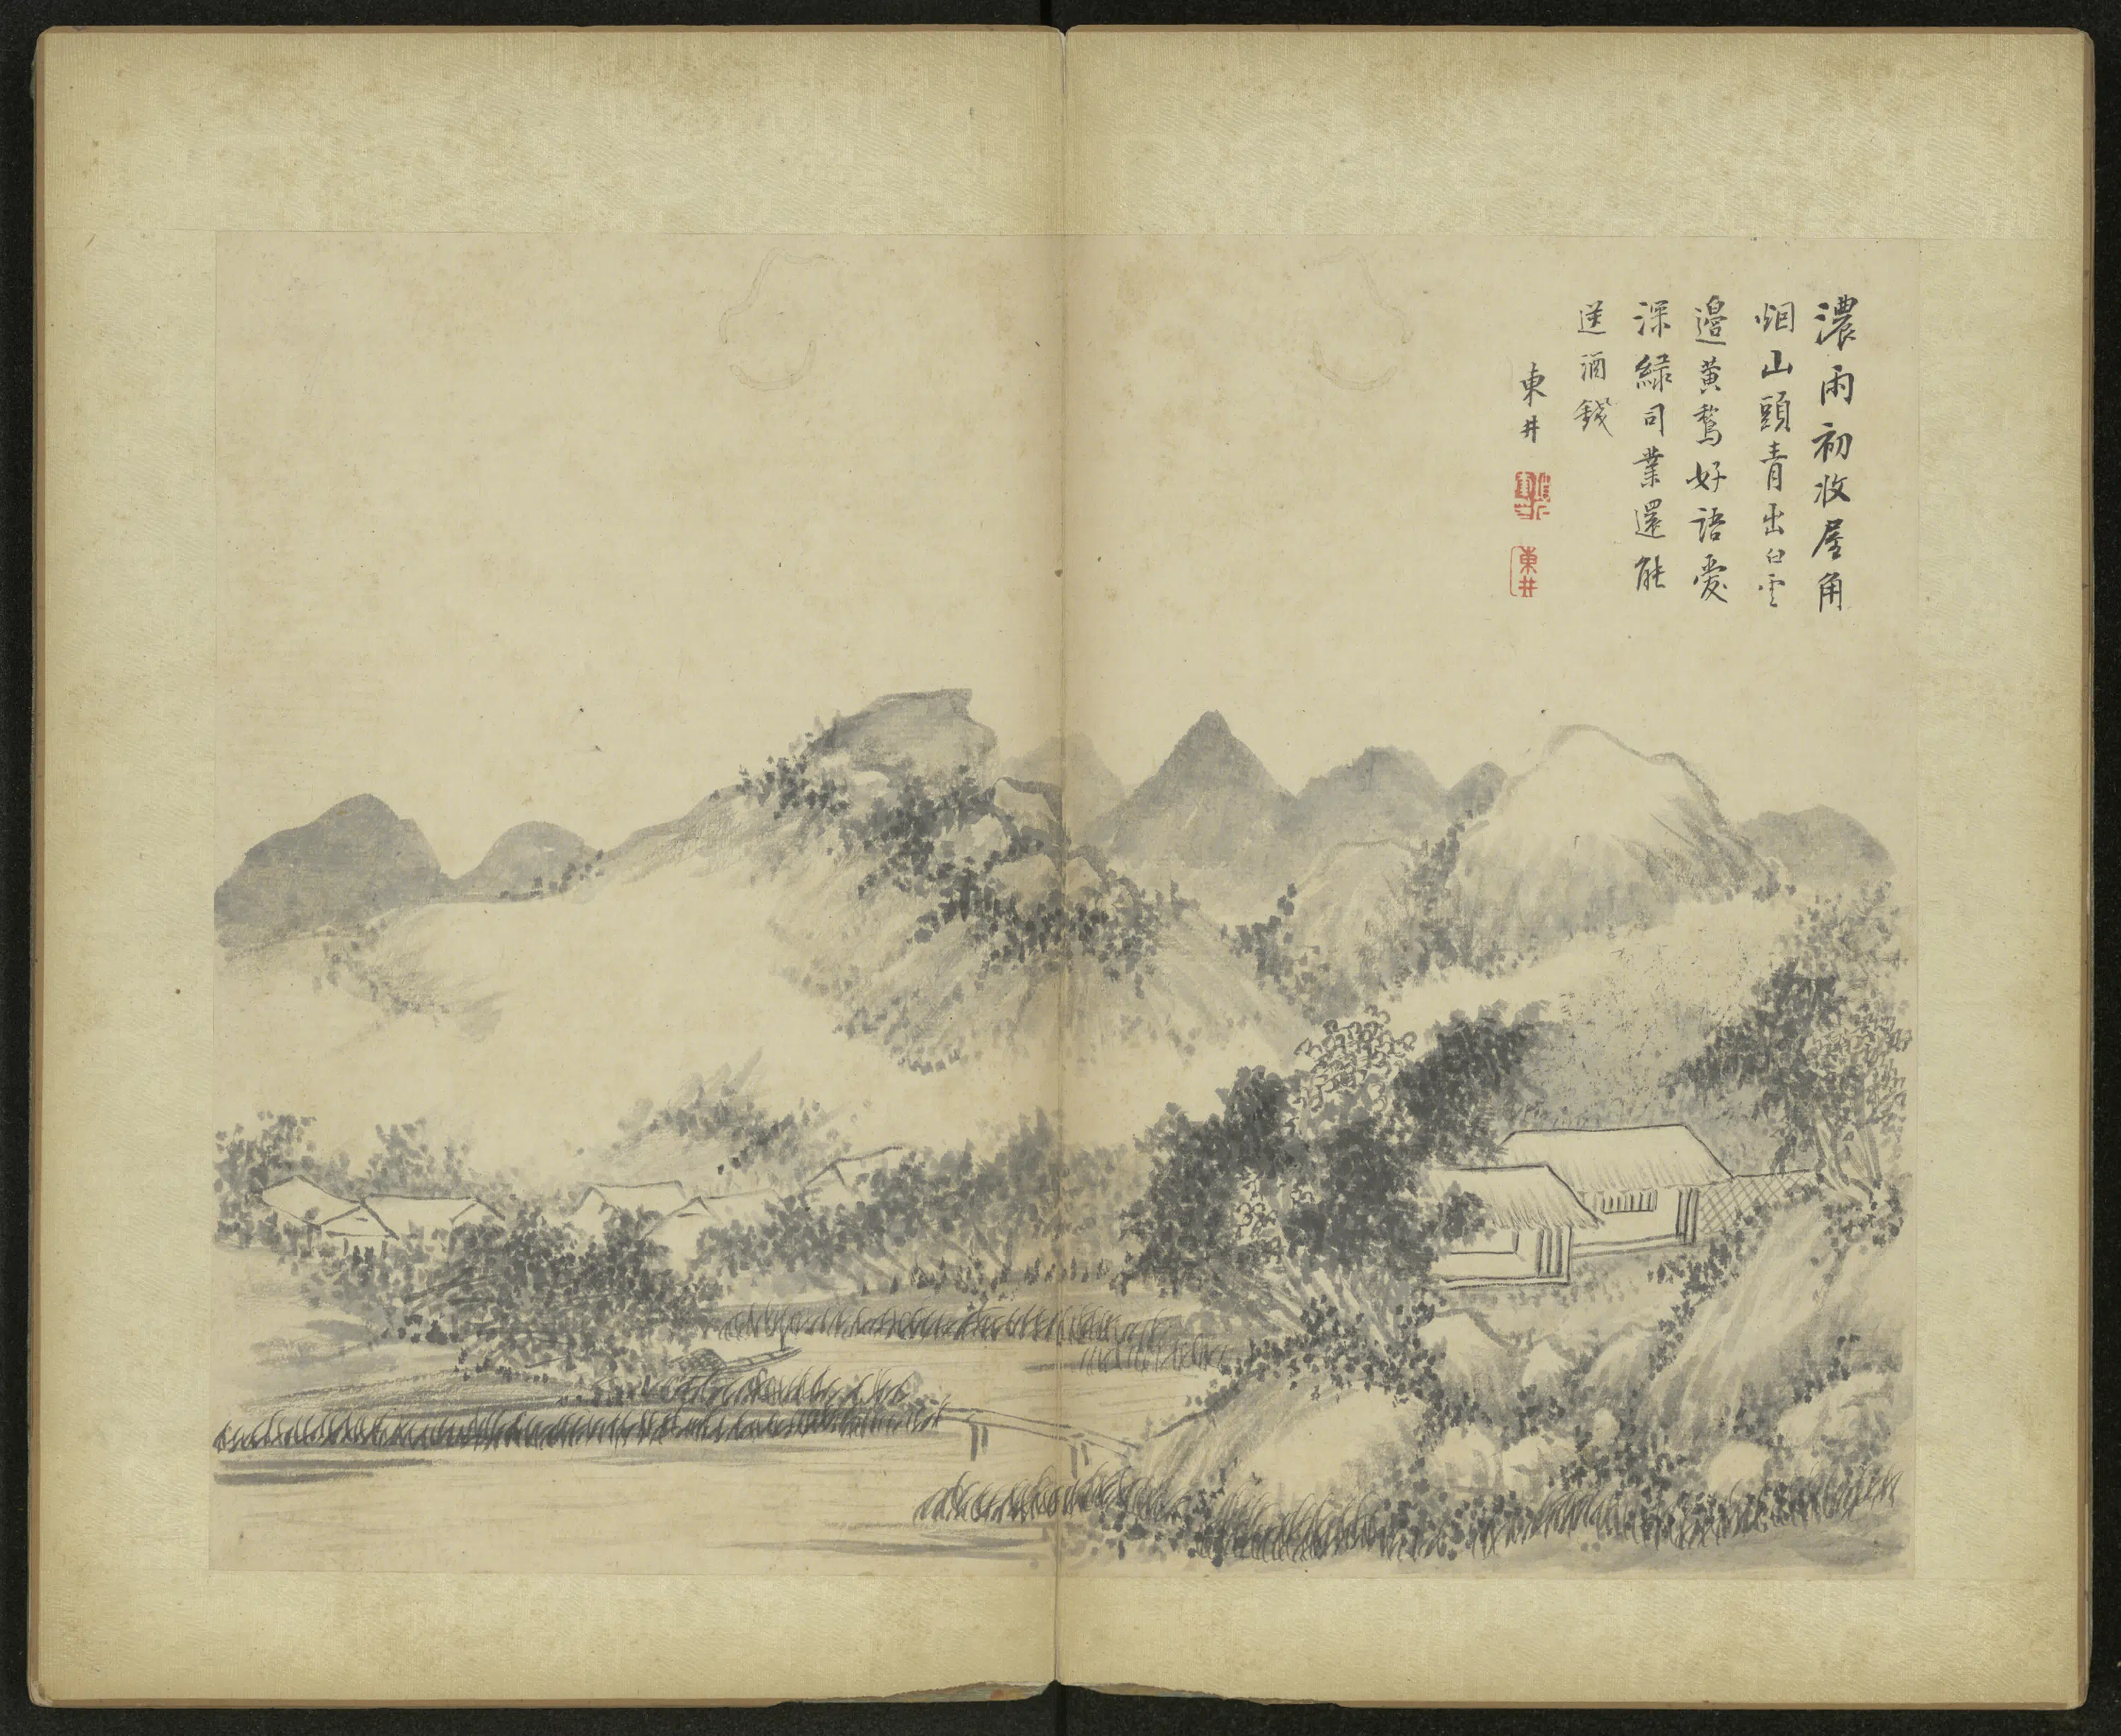 濃雨初收屋角
烟山頭青出白雲
邉黄鸝好語愛
深緑司業還能
送酒錢
東井
東井